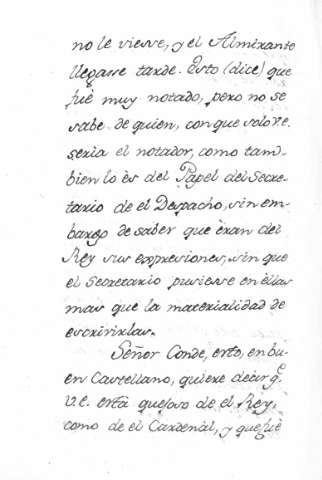 no le viesse, y el Almirante
llegasse tarde. Esto (dice) que
fuè muy notado, pero no se
sabe de quien, conque solo V.e.
seria el notador, como tam-
bien lo ès del Papel del Secre-
tario de el Despacho, sin em-
bargo de saber que èran del
Rey sus expresiones, sin que
el Secretario pusiesse en èllas
mas que la materialidad de
escrivirlas.
Señor Conde, esto, en bu-
en Castellano, quiere decir q.e
V.e. està quejoso de el Rey,
como de el Cardenal, y que fuè